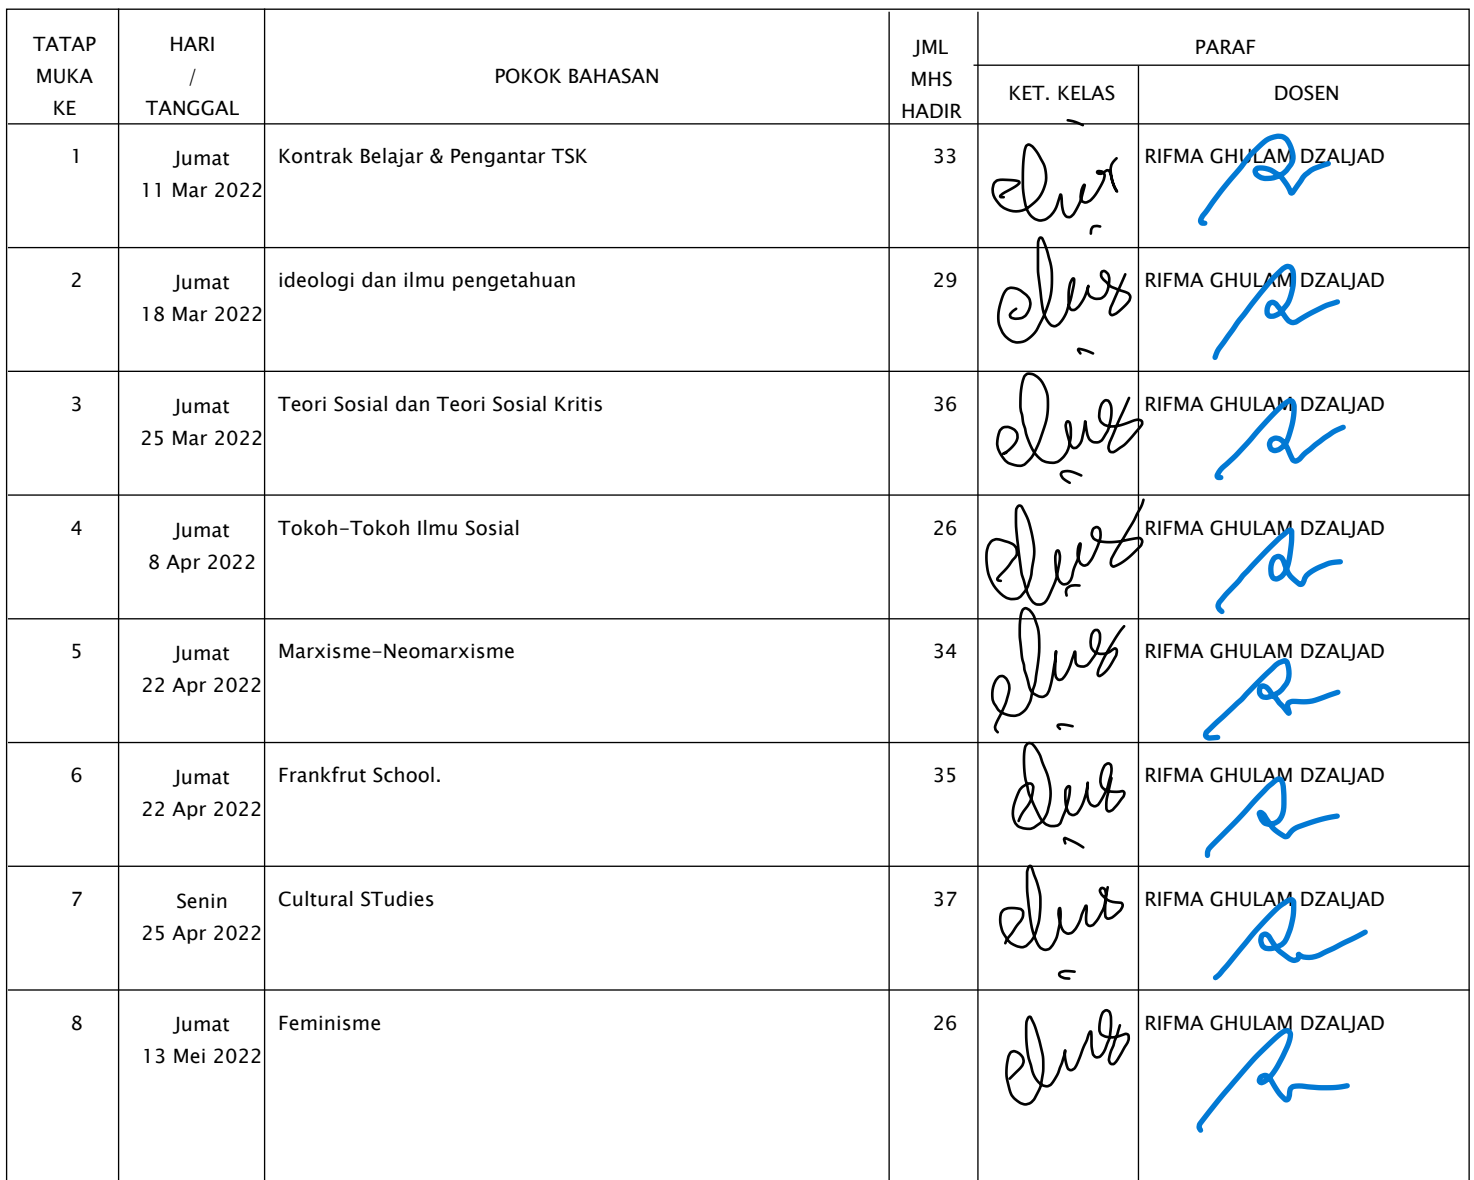 TATAP MUKA KE
HARI / TANGGAL
POKOK BAHASAN
JML MHS HADIR
PARAF
KET. KELAS
DOSEN
1 Jumat 11 Mar 2022 Kontrak Belajar & Pengantar TSK 33 RIFMA GHULAM DZALJAD
2 Jumat 18 Mar 2022 ideologi dan ilmu pengetahuan 29 RIFMA GHULAM DZALJAD
3 Jumat 25 Mar 2022 Teori Sosial dan Teori Sosial Kritis 36 RIFMA GHULAM DZALJAD
4 Jumat 8 Apr 2022 Tokoh-Tokoh Ilmu Sosial 26 RIFMA GHULAM DZALJAD
5 Jumat 22 Apr 2022 Marxisme-Neomarxisme 34 RIFMA GHULAM DZALJAD
6 Jumat 22 Apr 2022 Frankfrut School. 35 RIFMA GHULAM DZALJAD
7 Senin 25 Apr 2022 Cultural STudies 37 RIFMA GHULAM DZALJAD
8 Jumat 13 Mei 2022 Feminisme 26 RIFMA GHULAM DZALJAD